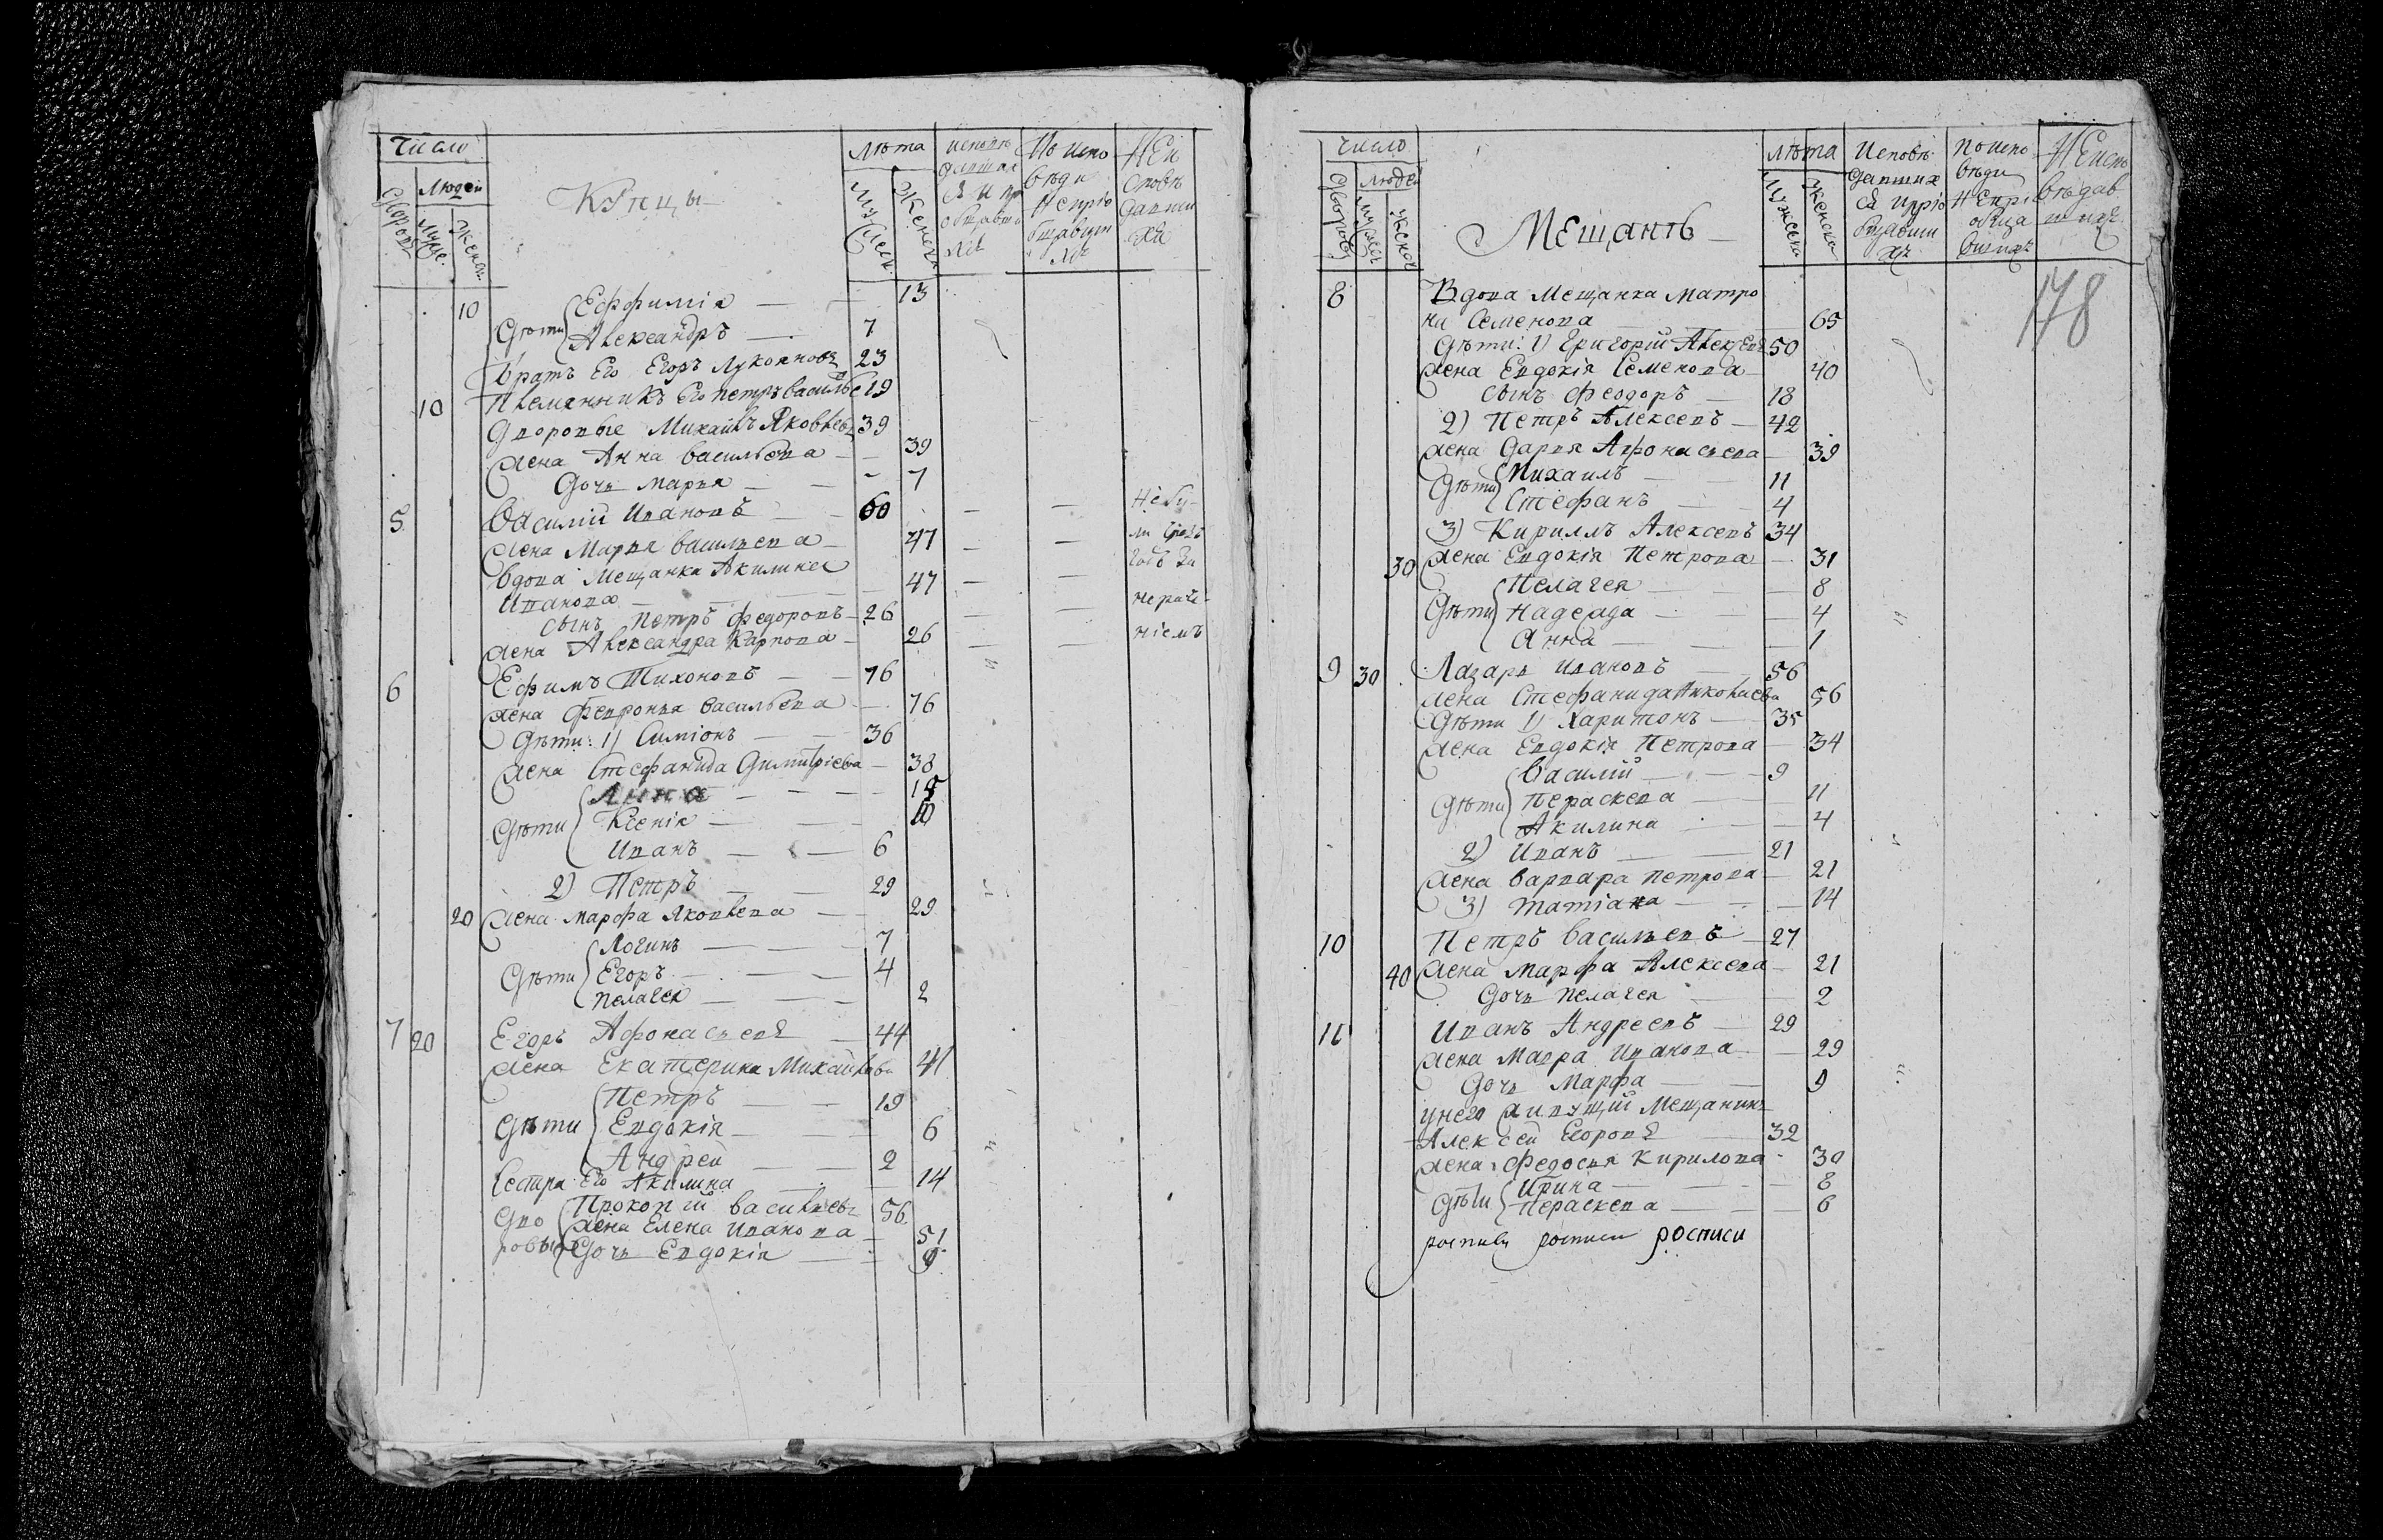 Число
Людей
Дворовъ
Муже.
Женск.
Купцы
Лѣта
Мужеск.
Женска
По испо
вѣди
Не испо
вѣ
давши
хъ
10 Дѣти Ефѳимія — 13
Александръ — 7
Братъ Его Егоръ Лукояновъ 23
10 Племянникъ Его Петръ Василье 19
Дворовые Михайлъ Яковлевъ 39
Жена Анна Васильева — 39
Дочь Марья — 7
5 Василій Ивановъ — 60 — — Небы-
Жена Марья Васильева — 47 — — ли
Вдова Мещанка Акилина
Ивановна — 47 — — нераче-
Сынъ Петръ Федоровъ — 26
Жена Александра Карпова — 26 — — ніемъ
6 Ефимъ Тихоновъ — 76
Жена Февронья Васильева — 76
Дѣти: 1) Симіонъ — 36
Жена Стефанида Димитріева — 38
Анна — 15
Дѣти Ксенія — 10
Иванъ — 6
2) Петръ — 29
20 Жена Марфа Яковлева — 29
Логинъ — 7
Дѣти Егоръ — 4
Пелагея — 2
7 20 Егоръ Афонасьевъ — 44
Жена Екатерина Михайлова 41
Петръ — 19
Дѣти Евдокія — 6
Андрей — 2
Сестра Его Акилина — 14
Дво Прокопій Васильевъ 56
Жена Елена Иванова — 51
ровые Дочь Евдокія — 9
Число
Людей
Дворовъ
Мужеск
Женск
Мещанъ
Лѣта
Мужеска
Женска
Исповѣ
давших
ся и прiо
бщавши
хъ
По испо
вѣди
не прі
обща
вшихъ
Не испо
вѣдав
шихъ
178
8 Вдова Мещанка Матро
на Семенова 65
Дѣти: 1) Григорій Алексеевъ 50
Жена Евдокія Семенова — 40
Сынъ Феодоръ — 18
2) Петръ Алексеевъ — 42
Жена Дарья Афонасьева — 39
Михаилъ — 11
Дѣти Стефанъ — 4
3) Кириллъ Алексеевъ 34
30 Жена Евдокія Петрова — 31
Пелагея — 8
Дѣти Надежда — 4
Анна — 1
9 30 Лазарь Ивановъ — 56
Жена Стефанида Николаева 56
Дѣти 1) Харитонъ — 35
Жена Евдокія Петрова — 34
Василій — 9
Дѣти Пераскева — 11
Акилина — 4
2) Иванъ — 21
Жена Варвара Петрова — 21
3) Татіана — 14
10 Петръ Васильевъ — 27
40 Жена Марфа Алексеева — 21
Дочь Пелагея — 2
11 Иванъ Андреевъ — 29
Жена Мавра Иванова — 29
Дочь Марфа — 9
Унего живущій Мещанинъ
Алексей Егоровъ 32
Жена Федосья Кирилова — 30
Ирина — 8
Дѣти Пераскева — 6
росписи росписи росписи